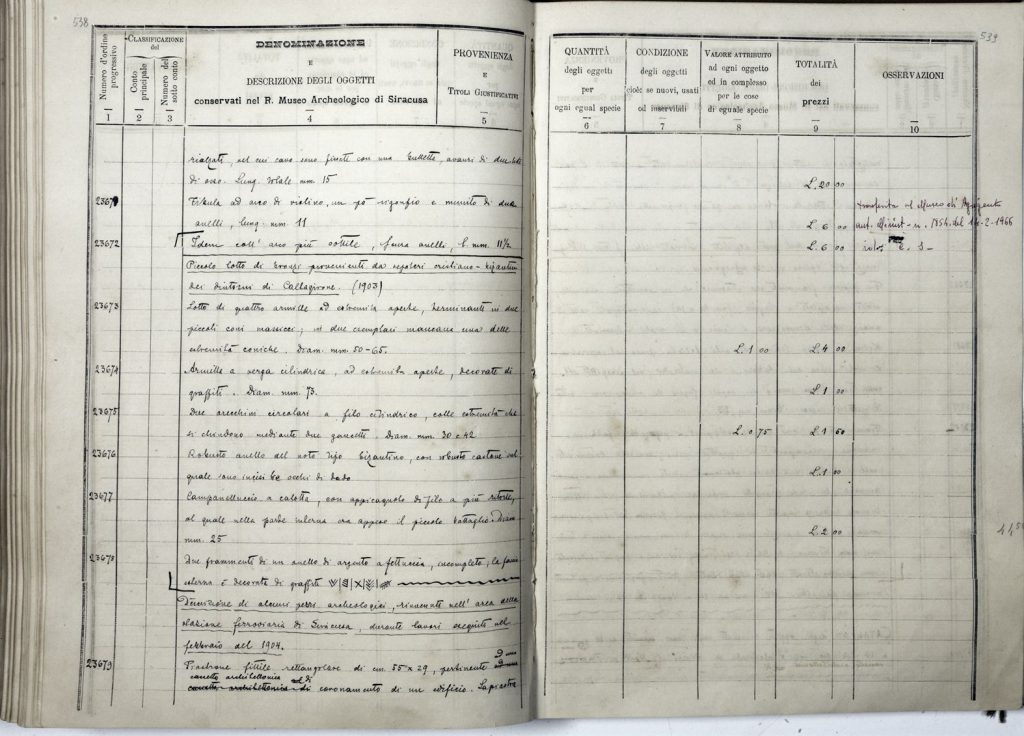 538
Numero d'ordine progressivo
CLASSIFICAZIONE del
Conto principale
Numero del sotto conto
DENOMINAZIONE
E
DESCRIZIONE DEGLI OGGETTI
conservati nel R. Museo Archeologico di Siracusa
PROVENIENZA
E
TITOLI GIUSTIFICATIVI
1 2 3 4 5
rialzati, nel cui cavo sono
di osso. Lung. totale mm. 15
23671 Fibula ad arco di violino, un pò rigonfio e munito di due
anelli, lung. mm. 11
23672 Idem coll' arco più sottile, senza anelli, l. mm. 11½
Piccolo lotto di bronzi provenienti da sepolcri cristiano-bizantini
dei dintorni di Caltagirone. (1903)
23673 Lotto di quattro armille ad estremità aperte, terminanti in due
piccoli coni massicci; in due esemplari mancano una delle
estremità coniche. Diam. mm. 50-65.
23674 Armilla a verga cilindrica, ad estremità aperte, decorate di
graffiti. Diam. mm. 73.
23675 Due orecchini circolari a filo cilindrico, colle estremità che
si chiudono mediante due gancetti. Diam. mm. 30 e 42
23676 Robusto anello del noto tipo bizantino, con robusto castone sul
quale sono incisi occhi di dado
23677 Campanelluccio a calotta, con appicagnolo di filo a più ritorte,
al quale nella parte interna era appeso il piccolo battaglio. Diam.
mm. 25
23678 Due frammenti di un anello di argento a fettuccia, incompleto; la faccia
esterna è decorata di graffiti
Descrizione di alcuni pezzi archeologici, rinvenuti nell' area della
stazione ferroviaria di Siracusa, durante lavori eseguiti nel
febbraio del 1904.
23679 Piastrone fittile rettangolare di cm. 55 x 29, pertinente
di coronamento di un edificio. La piastra
539
QUANTITÀ
degli oggetti
per
ogni egual specie
6
CONDIZIONE
degli oggetti
cioè: se nuovi, usati
od inservibili
7
VALORE ATTRIBUITO
ad ogni oggetto
ed in complesso
per le cose
di eguale specie
8
TOTALITÀ
dei
prezzi
9
OSSERVAZIONI
10
L. 20 00
trasferita al Museo di Agrigento
L. 6 00 aut. Minist. n. 1854 del 14-2-1966
L. 6 00
L. 1 00 L. 4 00
L. 1 00
L. 0 75 L. 1 50
L. 1 00
L. 2 00
44,50